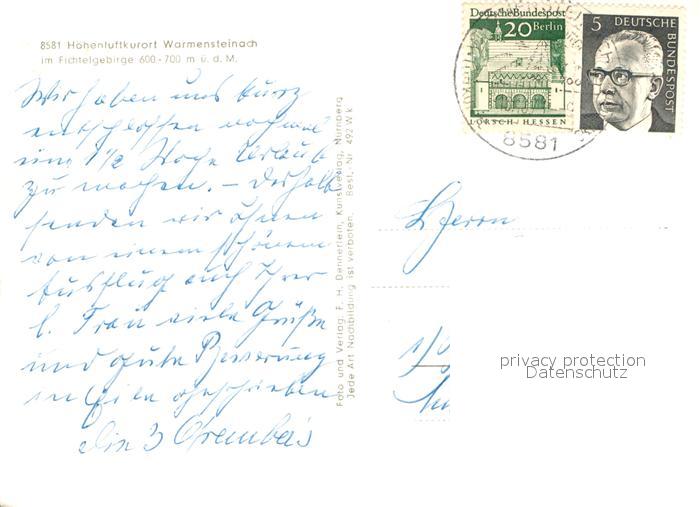 8581 Höhenluftkurort Warmensteinach
im Fichtelgebirge 600-700 m ü. d. M.
Wir haben uns kurz
entschlossen nochmal
uns 1½ Woche Urlaub
zu machen. – Deshalb
senden wir Ihnen
von einem schönen
Ausflug auch Ihrer
l. Frau viele Grüße
und gute Besserung
in Eile geschrieben
die 3
Foto und Verlag: F. H. Dennerlein, Kunstverlag, Nürnberg
Jede Art Nachbildung ist verboten. Best. Nr. 492 W k
Deutsche Bundespost
20 Berlin
LORSCH/HESSEN
5 DEUTSCHE
BUNDESPOST
8581
Herrn
privacy protection
Datenschutz